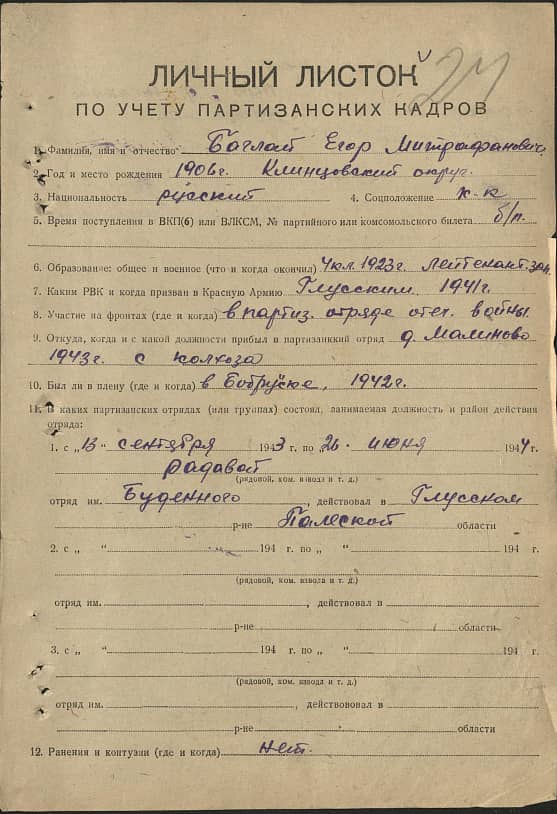 27
ЛИЧНЫЙ ЛИСТОК
ПО УЧЕТУ ПАРТИЗАНСКИХ КАДРОВ
1. Фамилия, имя и отчество Баглай Егор Митрафанович
2. Год и место рождения 1906г. Клинцовский округ.
3. Национальность русский 4. Соцположение к-к
5. Время поступления в ВКП(б) или ВЛКСМ, № партийного или комсомольского билета б/п.
6. Образование: общее и военное (что и когда окончил) 4кл. 1923г. лейтенант зап.
7. Каким РВК и когда призван в Красную Армию Глусским 1941г.
8. Участие на фронтах (где и когда) в партиз. отряде отеч. войны.
9. Откуда, когда и с какой должности прибыл в партизанский отряд д. Малиново
1943г. с колхоза
10. Был ли в плену (где и когда) в Бобруйске, 1942г.
11. В каких партизанских отрядах (или группах) состоял, занимаемая должность и район действия
отряда:
1. с „13“ сентября 1943 г. по „26“ июня 1944 г.
радавой
(рядовой, ком. взвода и т. д.)
отряд им. Буденного, действовал в Глусском
р-не Палеской области
2. с „ “ 194 г. по „ “ 194 г.
(рядовой, ком. взвода и т. д.)
отряд им. , действовал в
р-не области
3. с „ “ 194 г. по „ “ 194 г.
(рядовой, ком. взвода и т. д.)
отряд им. , действововал в
р-не области
12. Ранения и контузии (где и когда) нет.